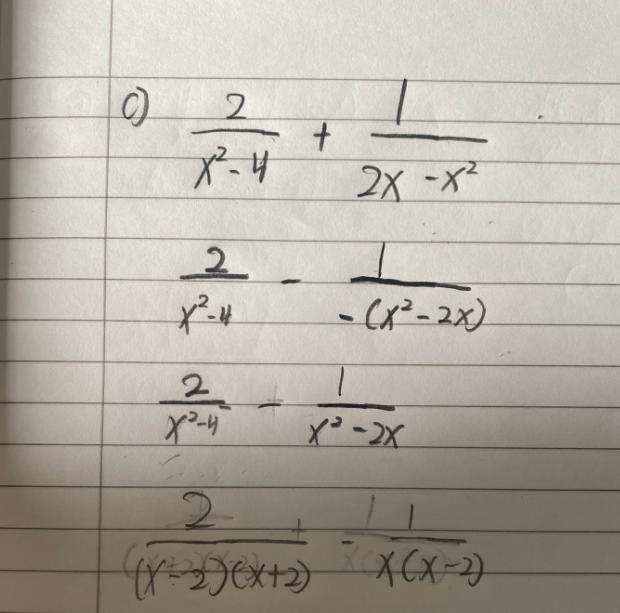 c) 2/(x²-4) + 1/(2x-x²)
2/(x²-4) - 1/(-(x²-2x))
2/(x²-4) - 1/(x²-2x)
2/((x-2)(x+2)) - 1/(x(x-2))